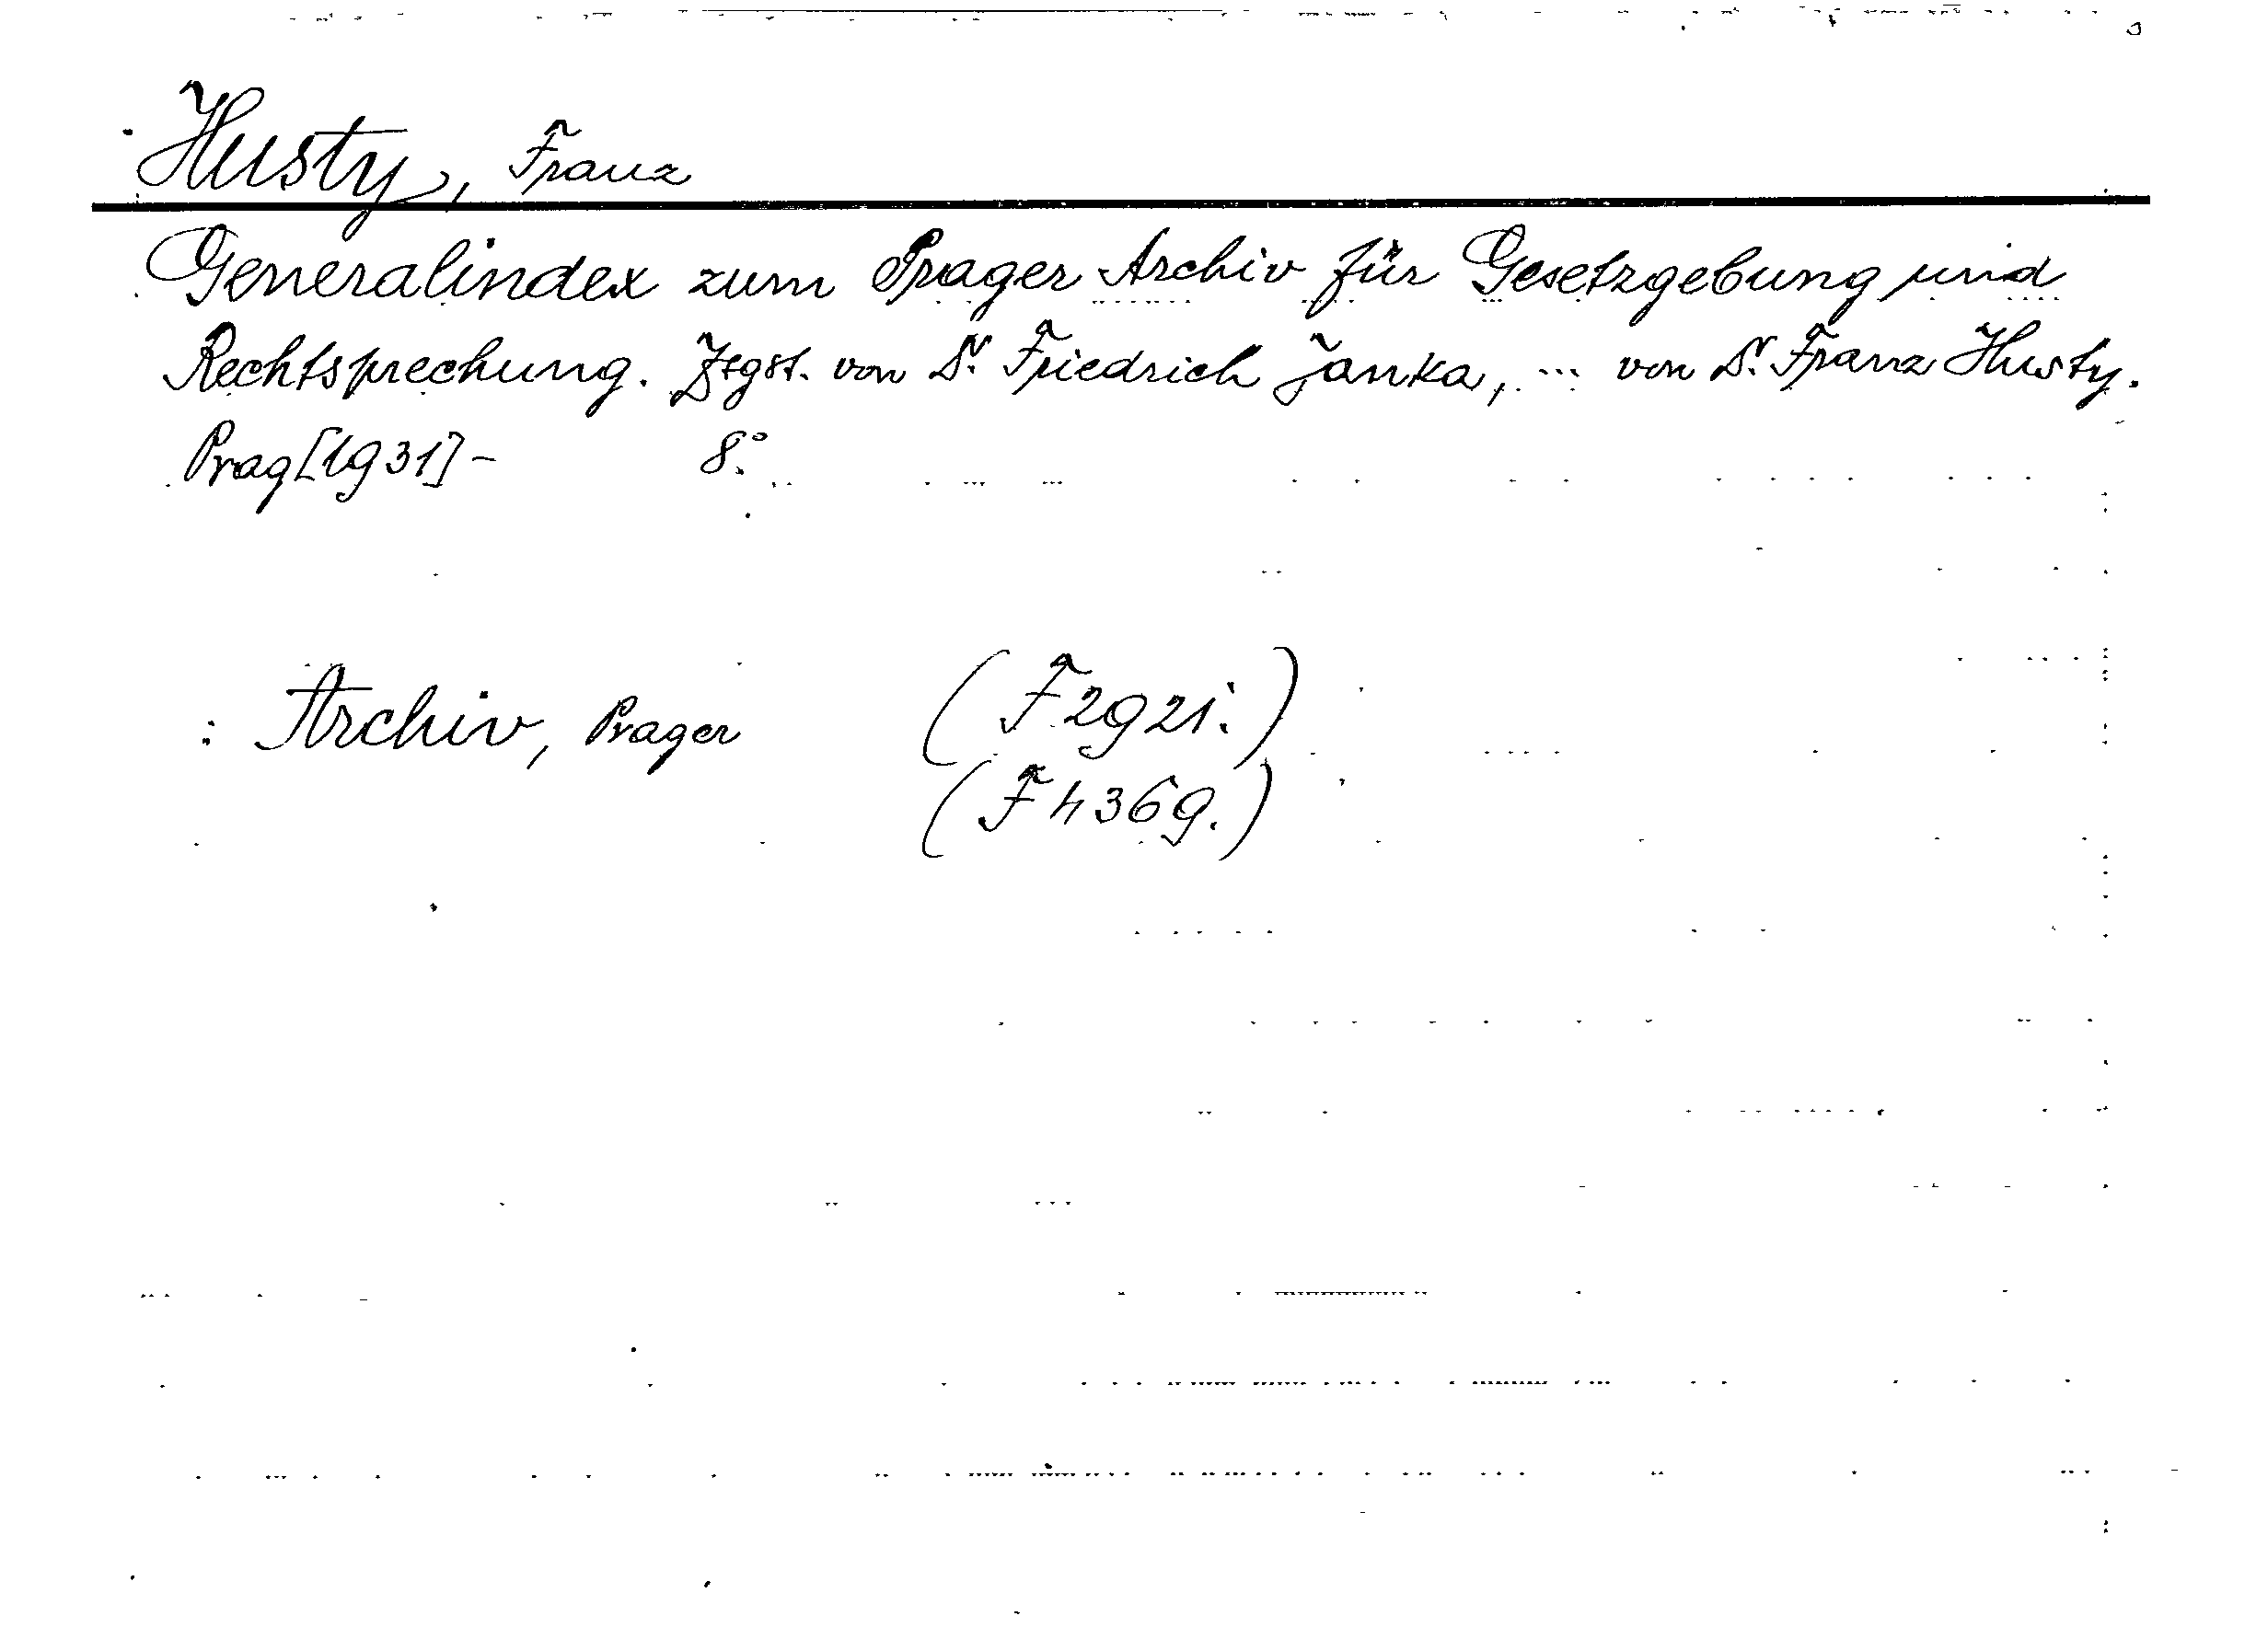 Husty, Franz
Generalindex zum Prager Archiv für Gesetzgebung und
Rechtsprechung. Zsgst. von Dr. Friedrich Janka, ... von Dr. Franz Husty.
Prag [1931] - 8°.
: Archiv, Prager (F 2921.)
(F 4369.)